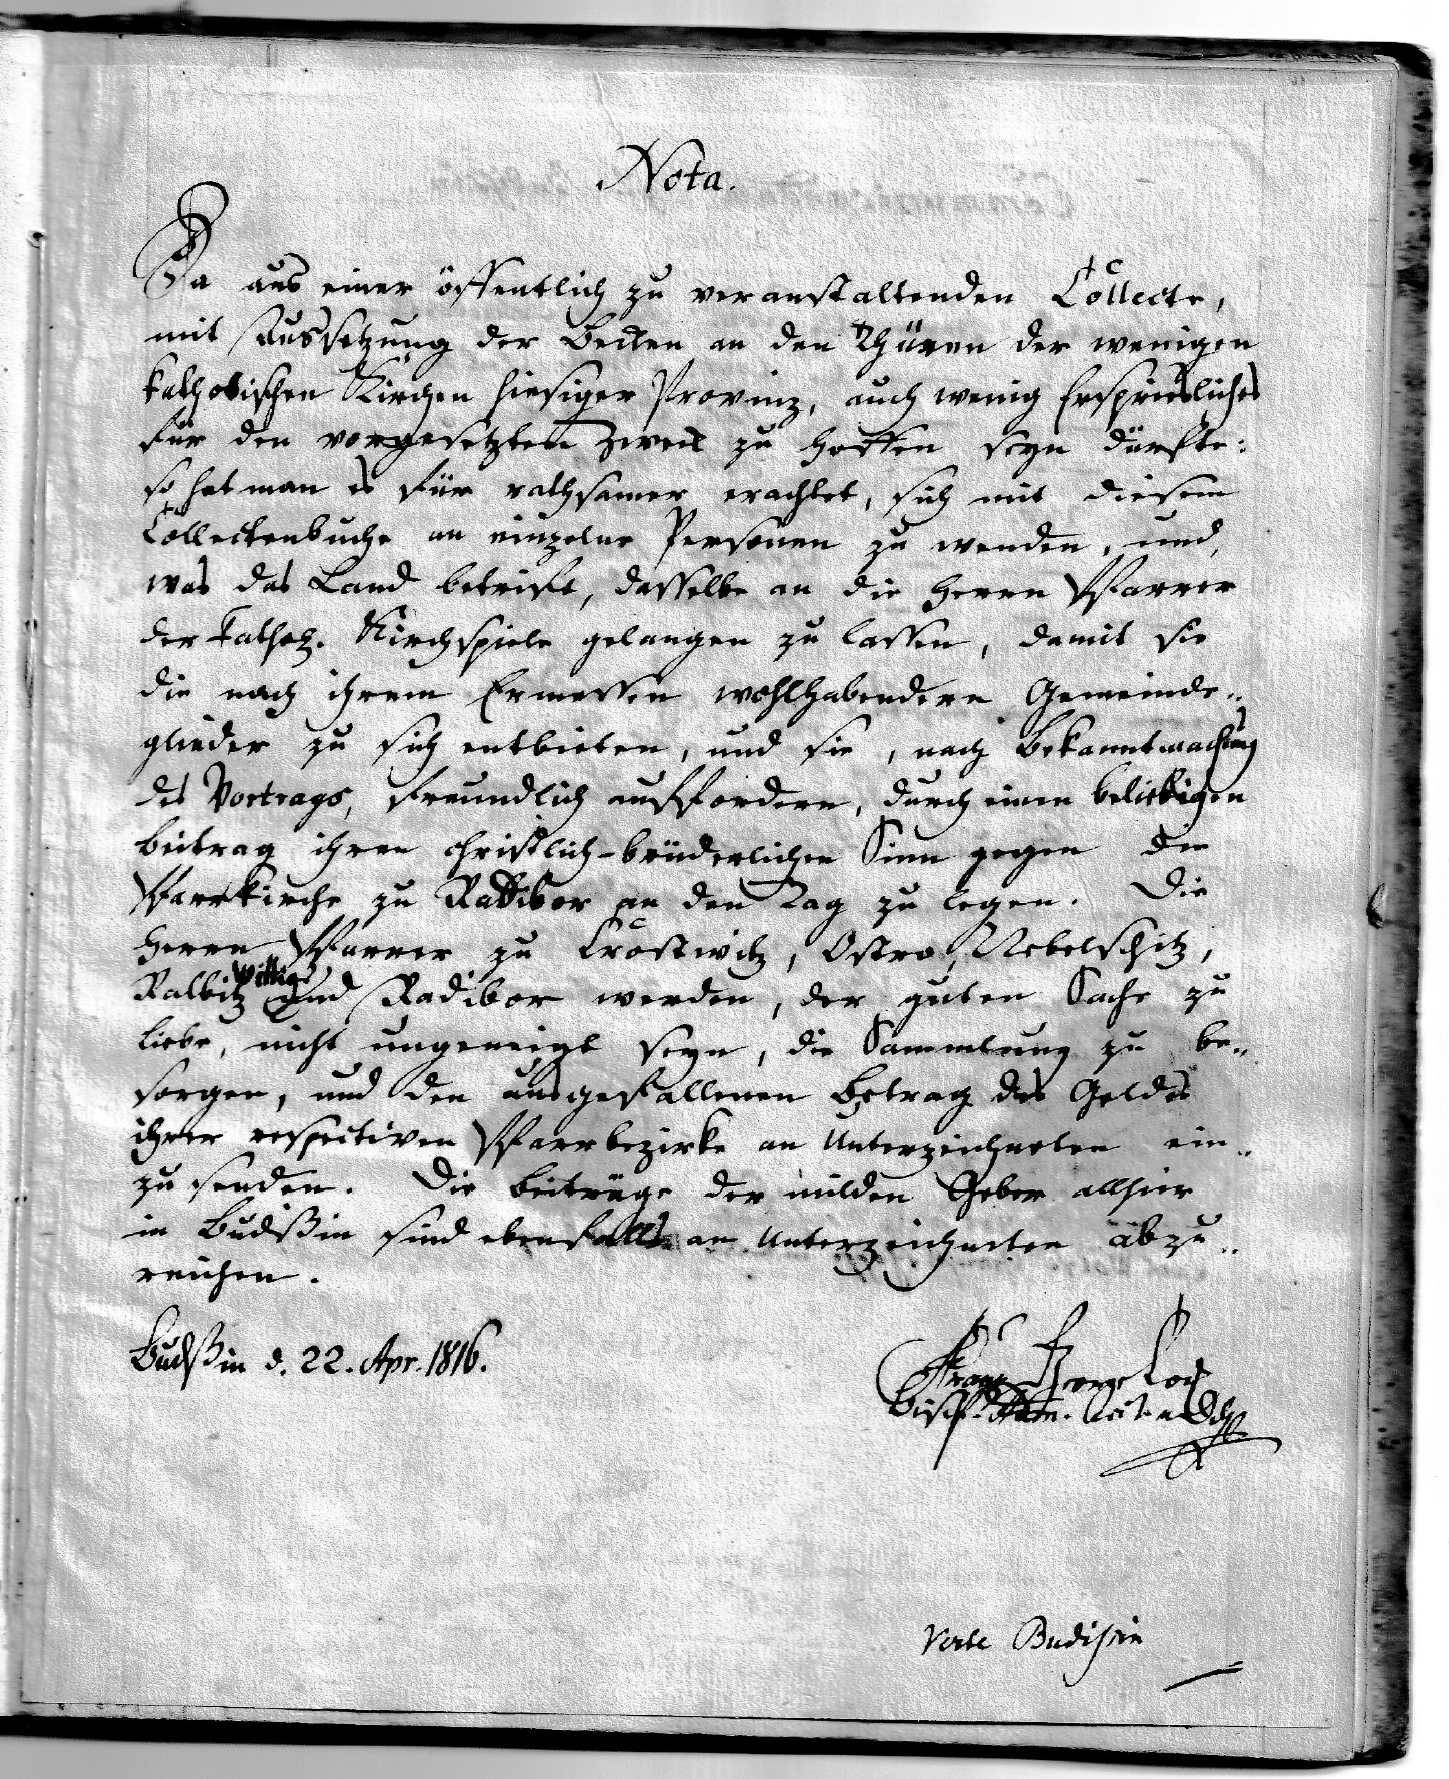 Nota.
Da aus einer öffentlich zu veranstaltenden Collecte,
mit Aussetzung der Becken an den Thüren der wenigen
katholischen Kirchen hiesiger Provinz, auch wenig Erspriesliches
für den vorgesetzten Zweck zu hoffen seyn dürfte:
so hat man es für rathsamer erachtet, sich mit diesem
Collectenbuche an einzelne Personen zu wenden, und,
was das Land betrift, dasselbe an die Herrn Pfarrer
der kathol. Kirchspiele gelangen zu lassen, damit sie
die nach ihrem Ermessen wohlhabendern Gemeinde-
glieder zu sich entbieten, und sie, nach Bekanntmachung
des Vortrags, freundlich auffordern, durch einen beliebigen
Beitrag ihren christlich-brüderlichen Sinn gegen die
Pfarrkirche zu Radibor an den Tag zu legen. Die
Herrn Pfarrer zu Crostwitz, Ostro, Nebelschitz,
Ralbitz Wittig und Radibor werden, der guten Sache zu
Liebe, nicht ungeneigt seyn, die Sammlung zu be-
sorgen, und den ausgefallenen Betrag des Geldes
ihrer respectiven Pfarrbezirke an Unterzeichneten ein-
zusenden. Die Beiträge der milden Geber allhier
in Budißin sind ebenfalls an Unterzeichneten abzu-
reichen.
Budißin d. 22. Apr. 1816.
Franz Georg Lock
Bischf.
Verte Budißin